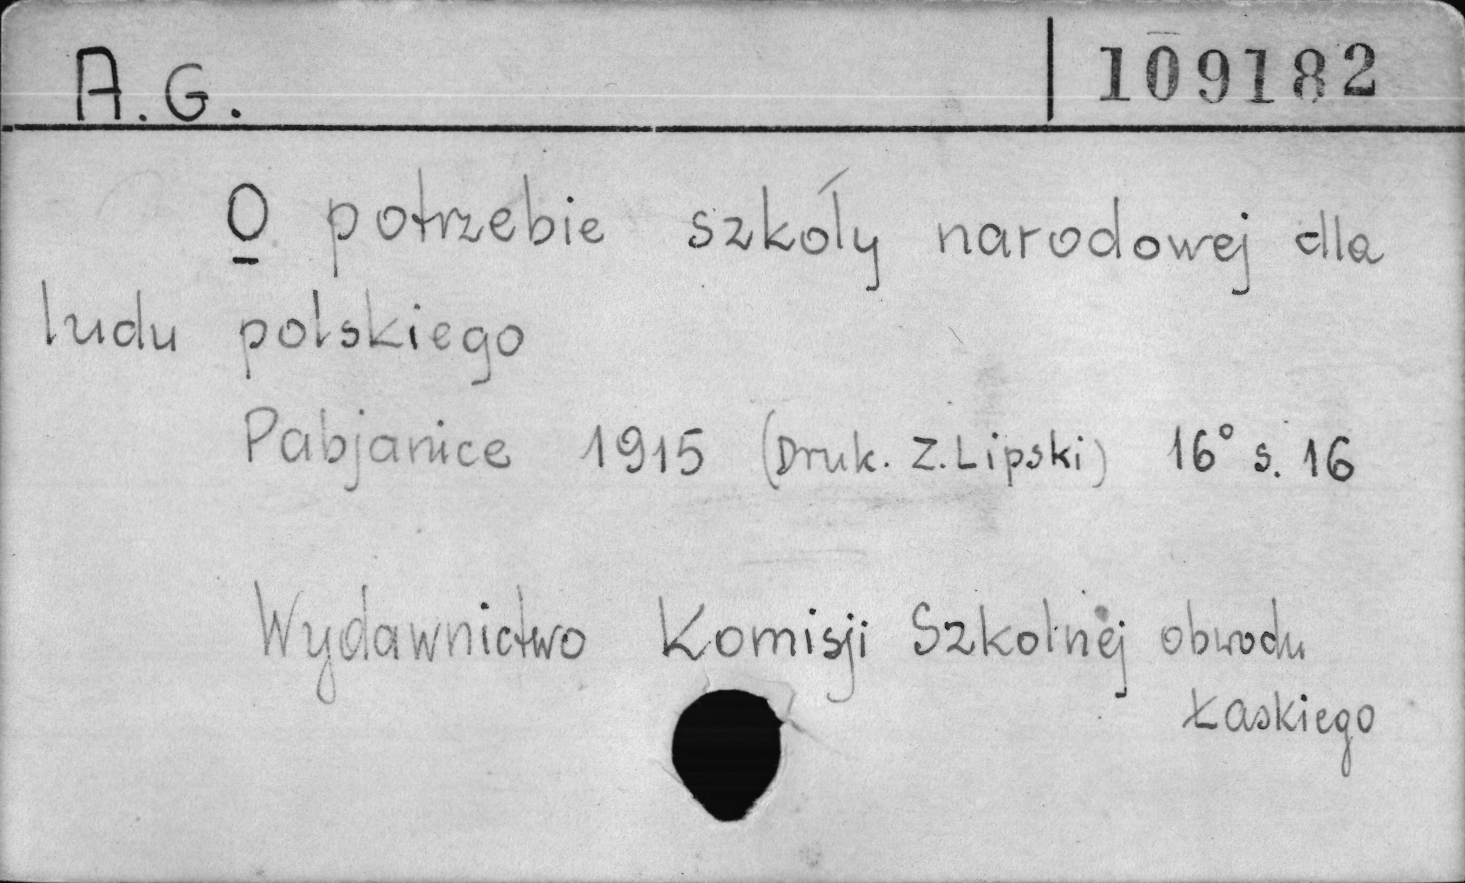 A.G.
109182
O potrzebie szkoły narodowej dla
ludu polskiego
Pabjanice 1915 (Druk. Z. Lipski) 16° s. 16
Wydawnictwo Komisji Szkolnej obwodu
Łaskiego